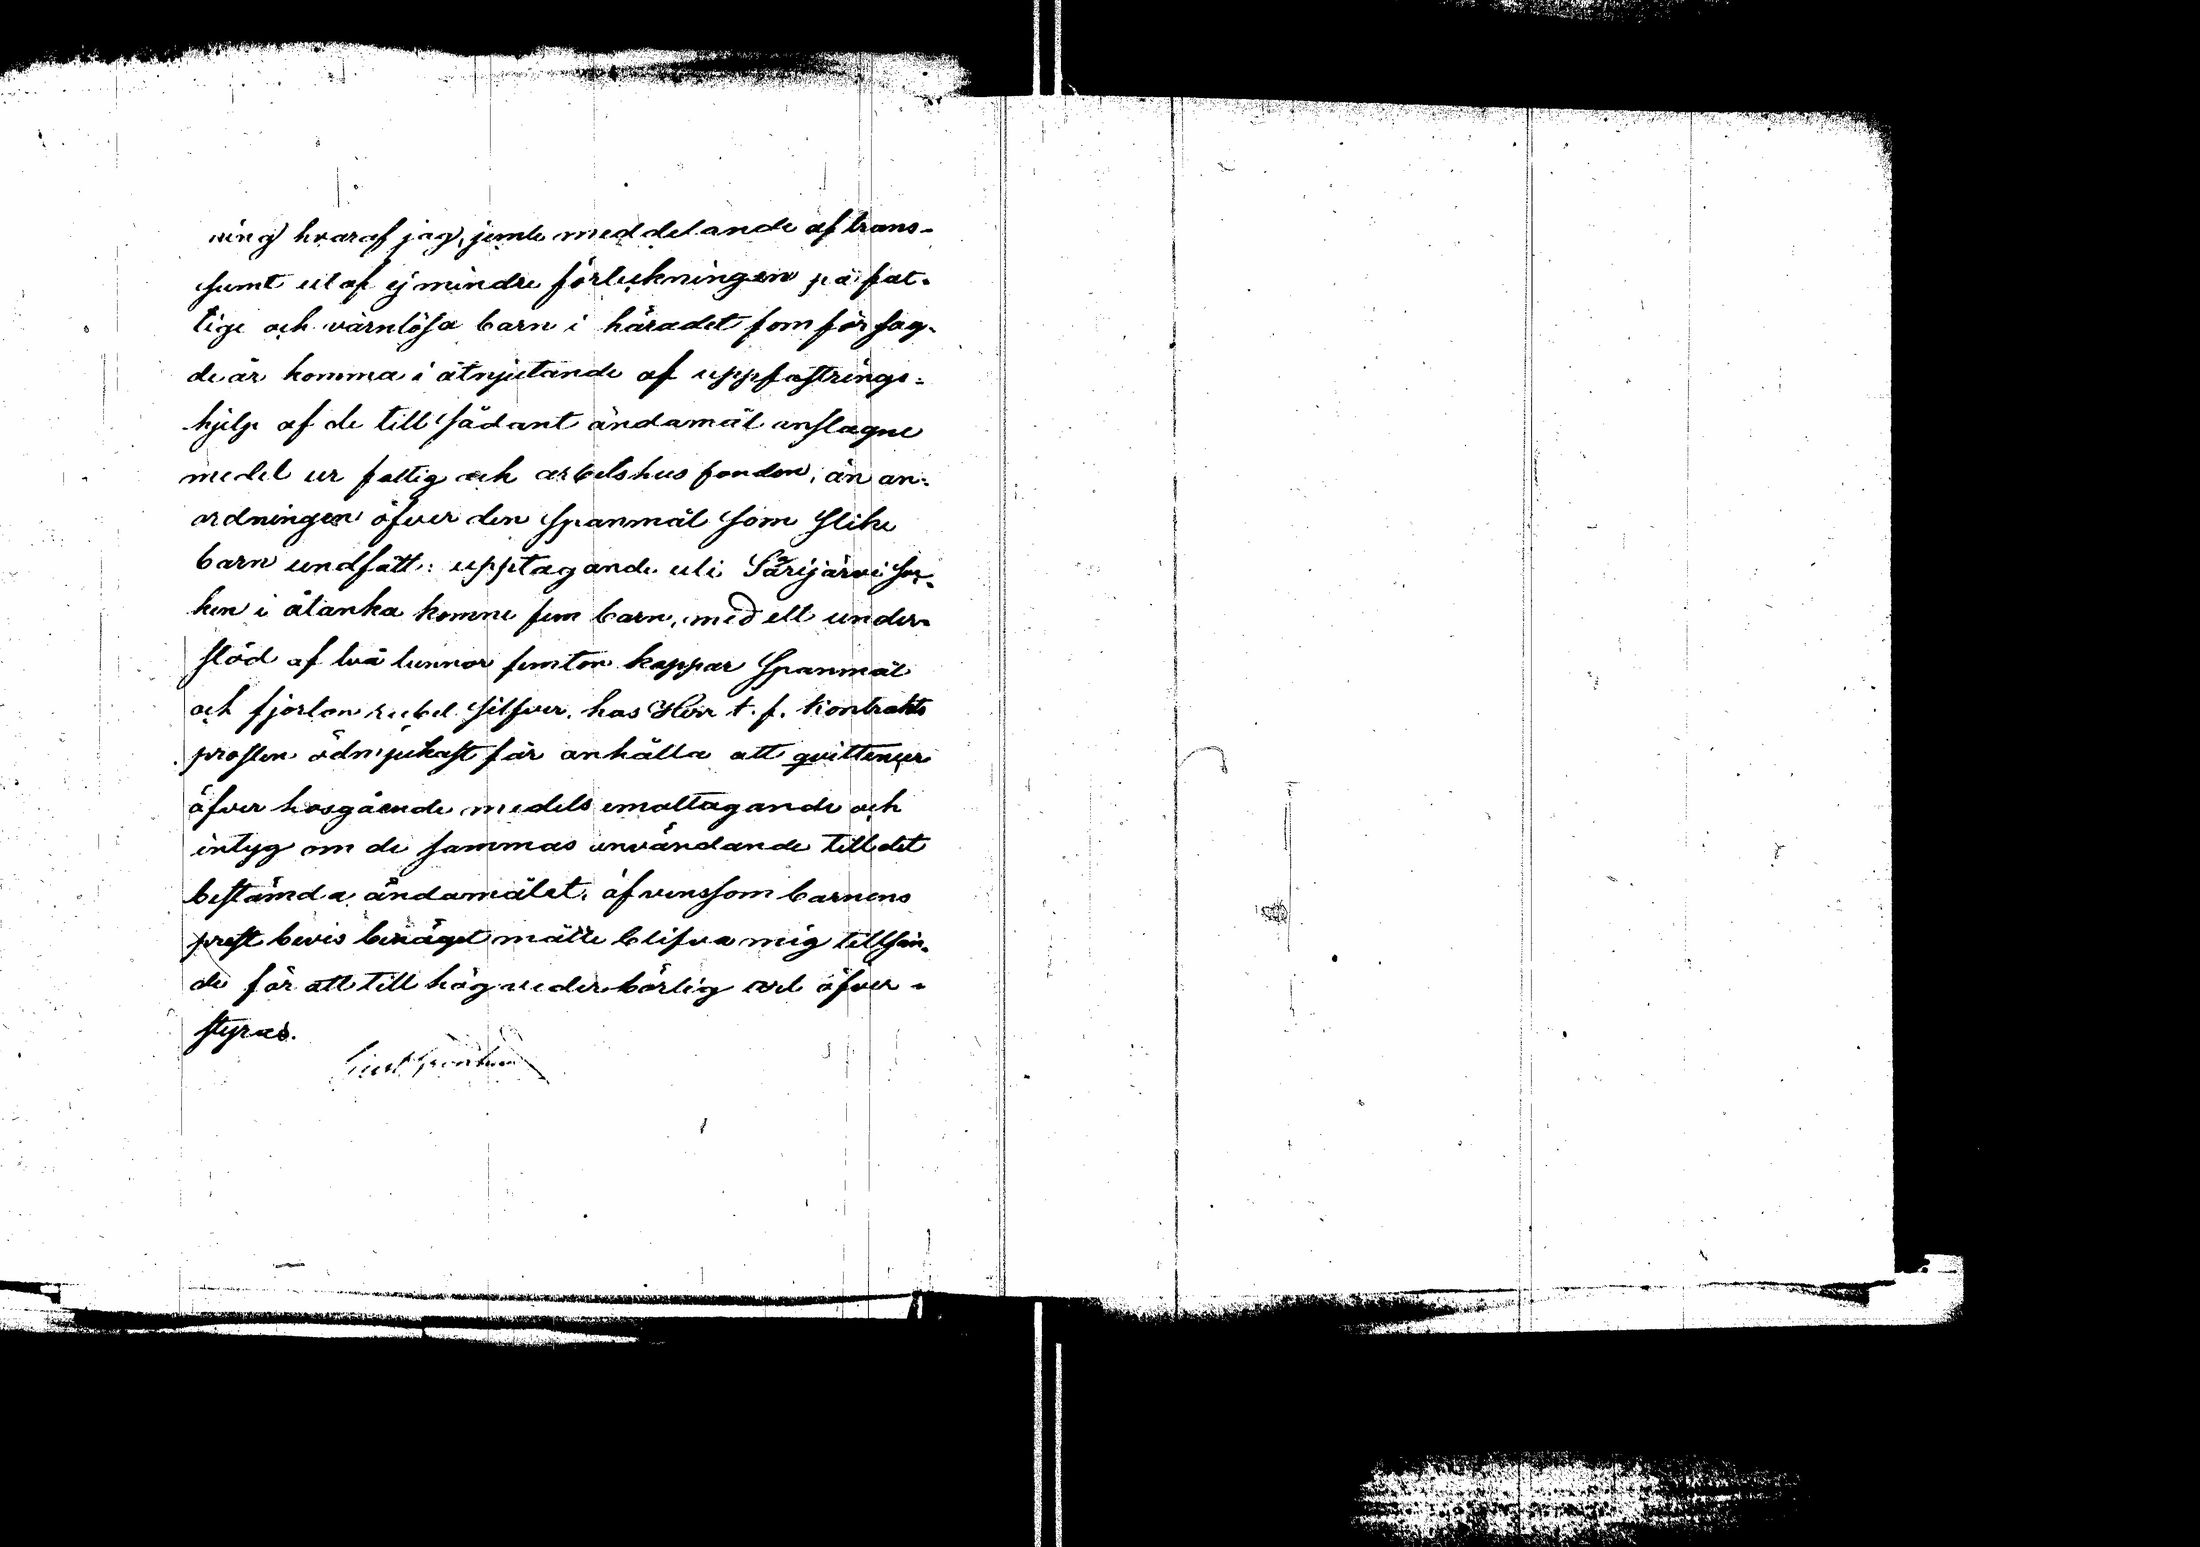 ning hvaraf jag, jemte meddelande af trans-
sumt utaf ej mindre förtekningen på fat-
tige och värnlösa barn i häradet som för sag-
de år komma i åtnjutande af uppfostrings-
hjelp af de till sådant ändamål anslagne
medel ur fattig och arbetshus fonden, än an-
ordningen öfver den Spanmål som slike
barn undfått: upptagande uti Sarijärvi Soc-
ken i åtanka komne fem barn, med ett under-
stöd af två tunnor femton kappar Spanmål
och fjorton rubel silfver, hos Herr t. f. Kontrakts
prosten ödmjukast får anhålla att qvittencer
öfver hosgående medels emottagande och
intyg om de sammas användande till det
bestämda ändamålet, äfvenssom barnens
prest bevis benäget måtte blifva mig tillsän-
de för att till hög vederbörlig ort öfver-
styras.